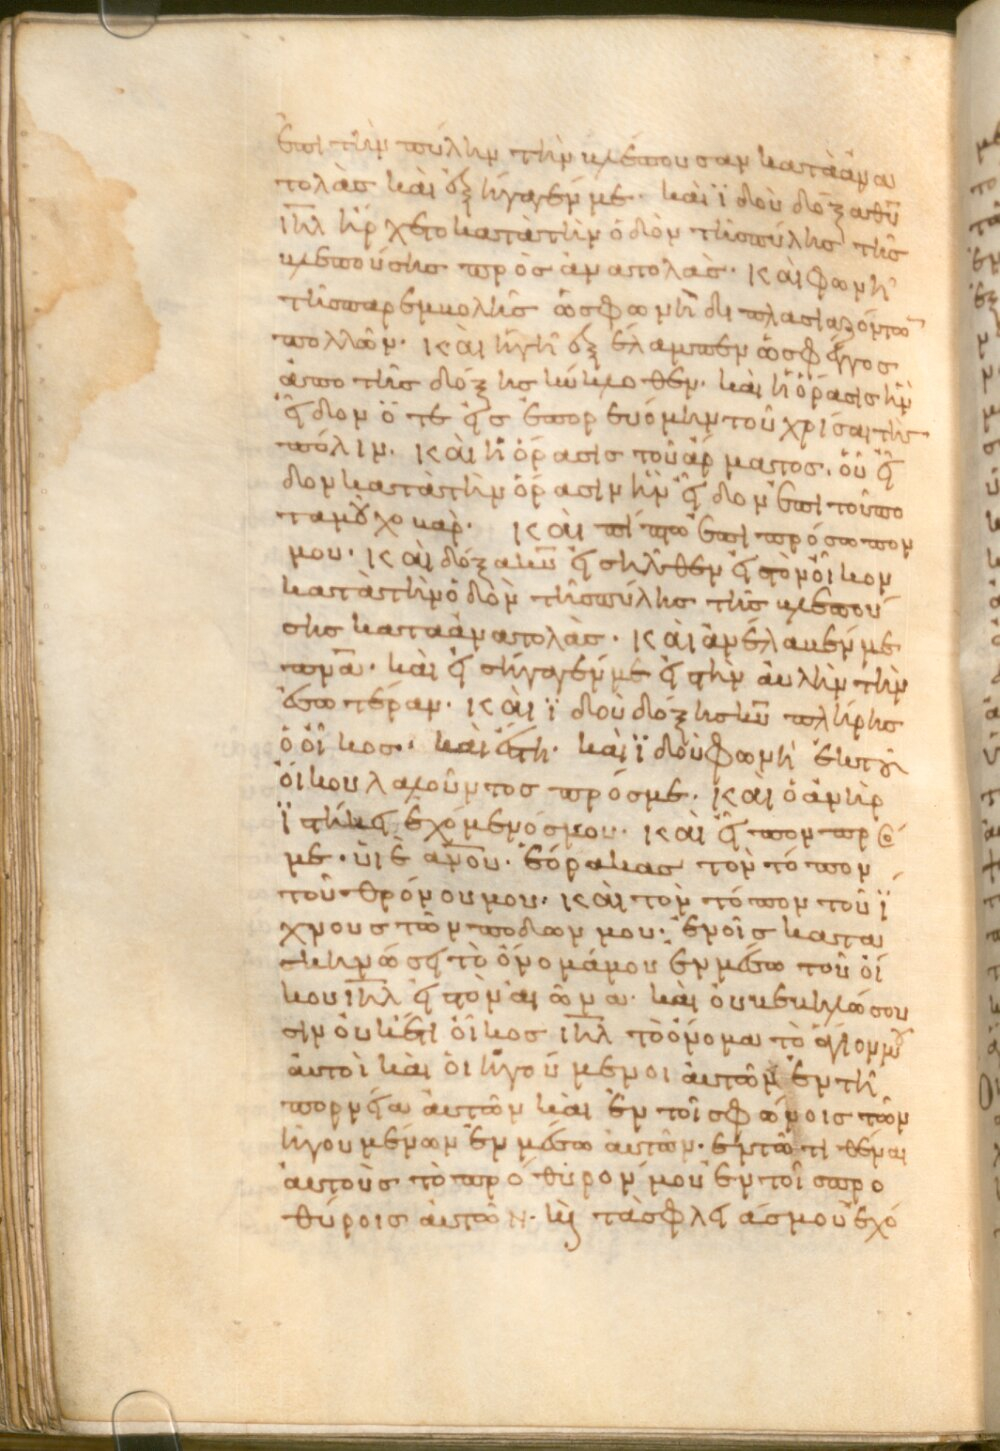 ἐπὶ τὴν πύλην τὴν βλέπουσαν κατὰ ἀνα
τολὰσ καὶ ἐξήγαγέν με· καὶ ϊδοὺ δόξα θῦ
ιηλ ἤρχετο κατὰ τὴν ὁδὸν τῆσ πύλησ τῆσ
βλεπούσησ πρὸσ ἀνατολὰσ· καὶ φωνὴ
τῆσ παρεμβολῆσ ὡσ φωνὴ διπλασιαζόντω
πολλῶν· καὶ ἡ γῆ ἐξέλαμπεν ὡσ φέγγοσ
ἀπὸ τῆσ δόξησ κύκλοθεν· καὶ ἡ ὅρασισ ἣν
εἶδον ὅτε εἰσεπορευόμην τοῦ χρίσαι τὴν
πόλιν· καὶ ἡ ὅρασισ τοῦ ἅρματοσ· οὗ εἶ
δον κατὰ τὴν ὅρασιν ἣν εἶδον ἐπὶ τοῦ πο
ταμοῦ χοβάρ· καὶ πίπτω ἐπὶ πρόσωπον
μου· καὶ δόξα κυ εἰσῆλθεν εἰσ τὸν οἶκον
κατὰ τὴν ὁδὸν τῆσ πύλησ τῆσ βλεπού
σησ κατὰ ἀνατολὰσ· καὶ ἀνέλαβέν με
πνα· καὶ εἰσήγαγέν με εἰσ τὴν αὐλὴν τὴν
ἐσωτέραν· καὶ ϊδοὺ δόξησ κυ πλήρησ
ὁ οἶκοσ· καὶ ἔστη· καὶ ϊδοὺ φωνὴ ἐκ τοῦ
οἴκου λαλοῦντοσ πρόσ με· καὶ ὁ ἀνὴρ
ϊστήκει ἐχόμενόσ μου· καὶ εἶπον πρὸσ
με· υἱὲ ανου· ἑόρακασ τὸν τόπον
τοῦ θρόνου μου· καὶ τὸν τόπον τοῦ ϊ
χνουσ τῶν ποδῶν μου· ἐν οἷσ κατα
σκηνώσει τὸ ὄνομά μου ἐν μέσω τοῦ οἴ
κου ιηλ εἰσ τὸν αἰῶνα· καὶ οὐ βεβηλώσου
σιν οὐκέτι οἶκοσ ιηλ τὸ ὄνομα τὸ ἅγιόν μου
αὐτοὶ καὶ οἱ ἡγούμενοι αὐτῶν ἐν τῆ
πορνεία αὐτῶν καὶ ἐν τοῖσ φώνοισ τῶν
ἡγουμένων ἐν μέσω αὐτῶν· ἐν τῶ τιθέναι
αὐτοὺσ τὸ πρόθυρόν μου ἐν τοῖσ προ
θύροισ αὐτῶν· καὶ τὰσ φλειάσ μου ἐχό